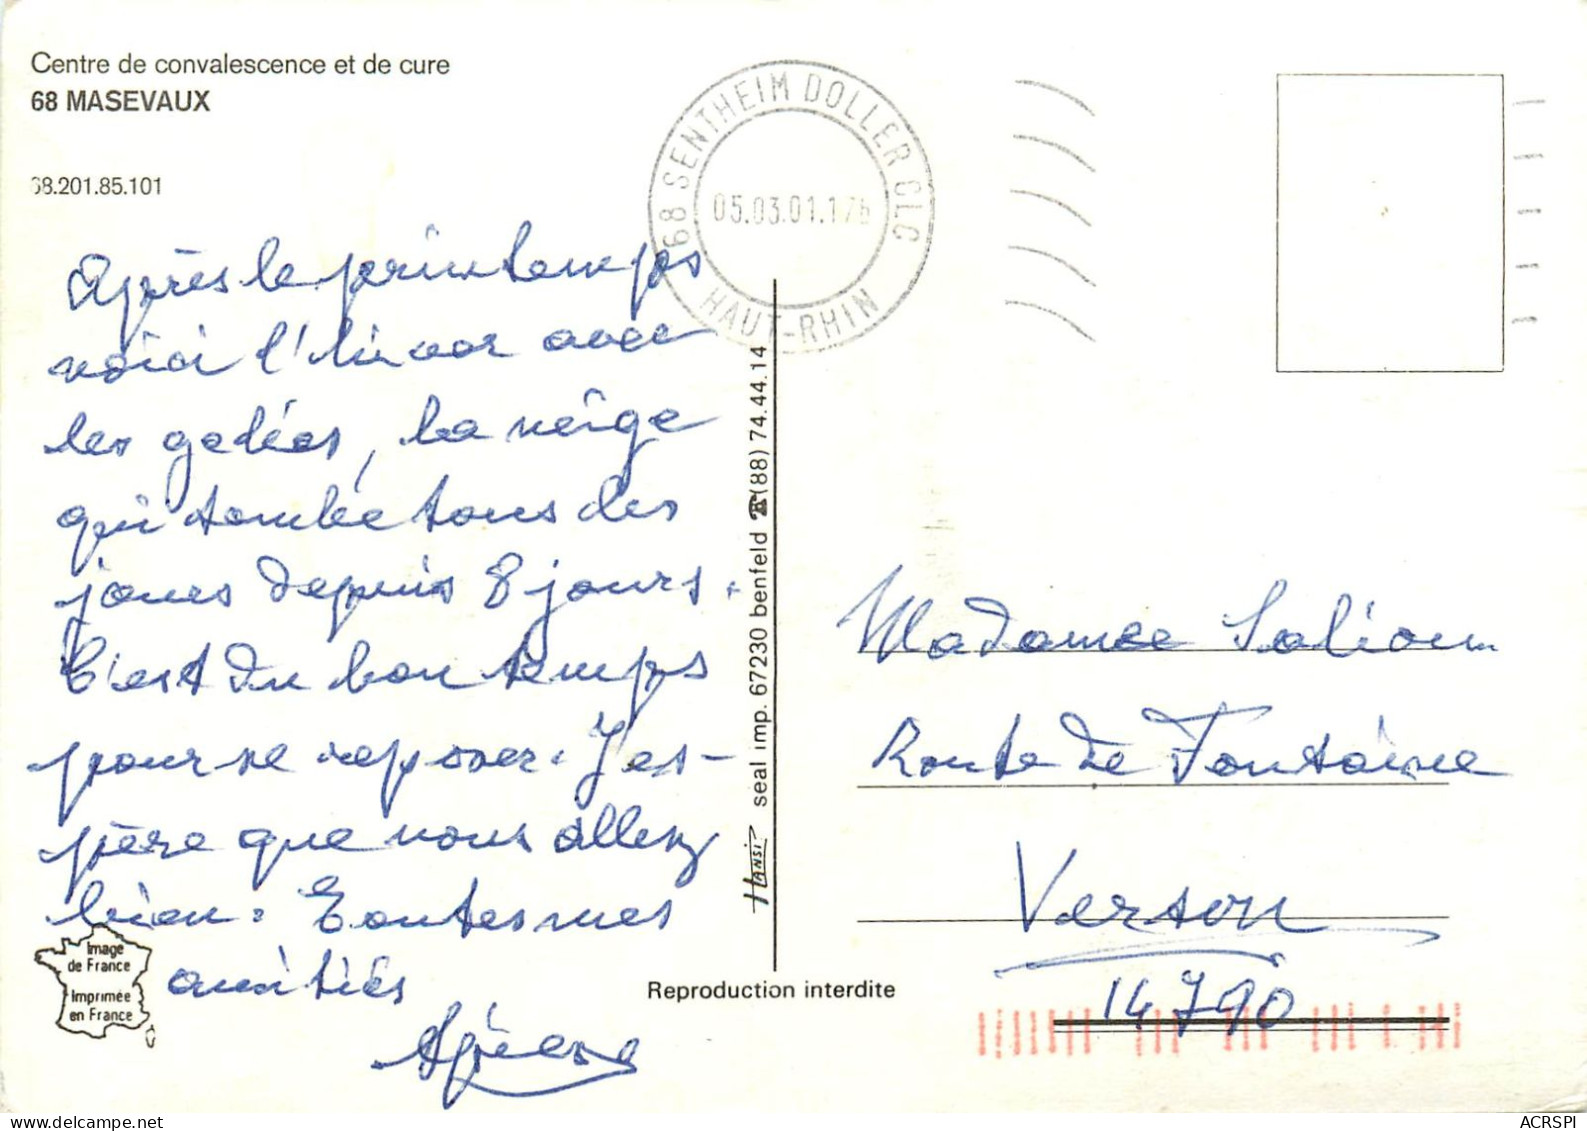 Centre de convalescence et de cure
68 MASEVAUX
68.201.85.101
68 SENTHEIM DOLLER CLC
05.03.01.17h
HAUT-RHIN
Après le printemps
voici l'hiver avec
les gelées, la neige
qui tombe tous les
jours depuis 8 jours.
C'est du bon temps
pour se reposer. J'es-
père que vous allez
bien. Toutes mes
amitiés
seal imp. 67230 benfeld ☎(88) 74.44.14
HANSI
Image
de France
Imprimée
en France
Reproduction interdite
Madame
Route de Fontaine
Verson
14790
ACRSPI